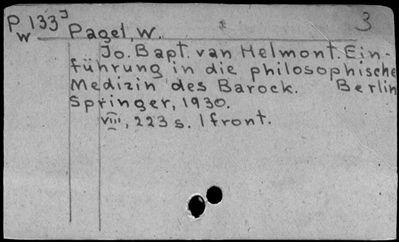 P 133 J 3
w Pagel, W.
Jo. Bapt. van Helmont. Ein-
führung in die philosophische
Medizin des Barock. Berlin
Springer, 1930.
viii, 223 s. 1 front.